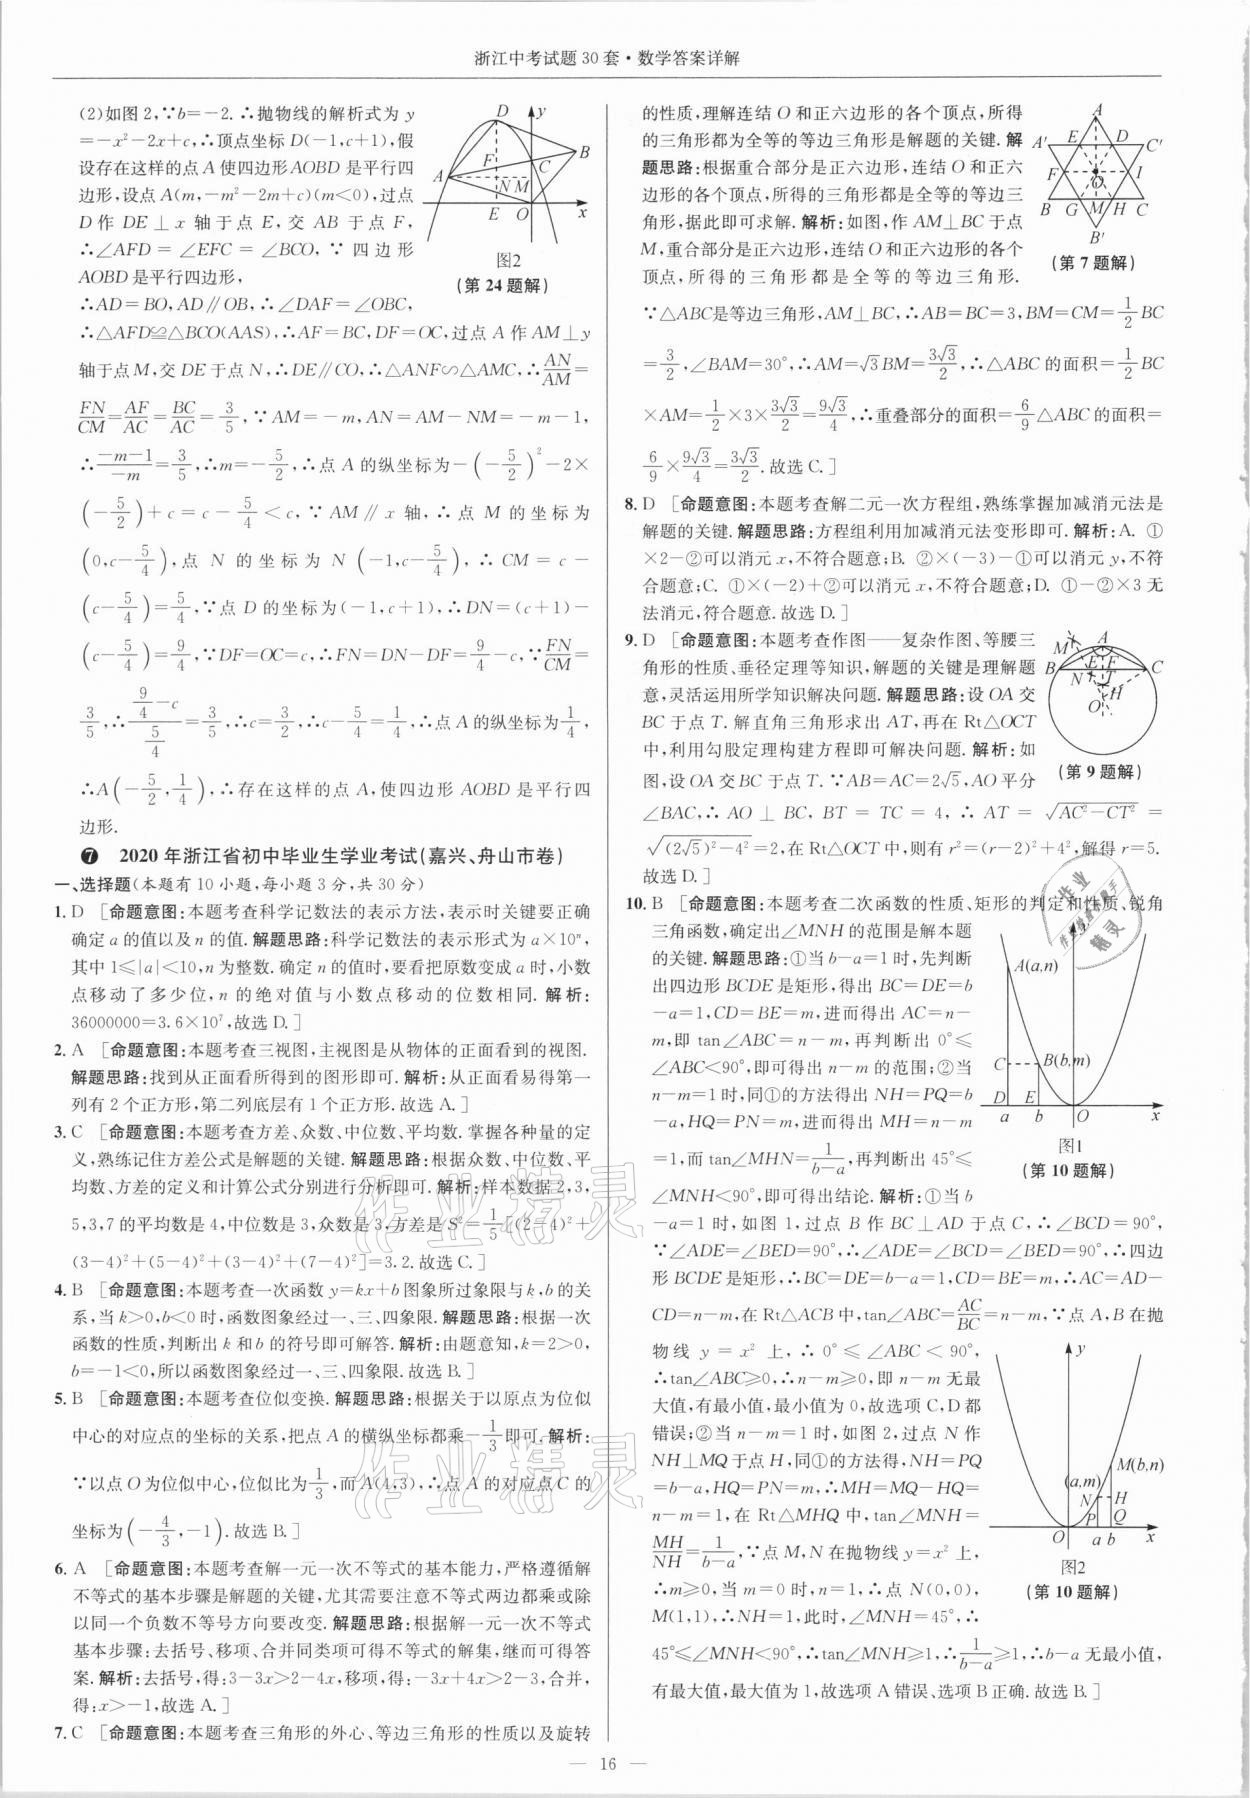 浙江中考试题30套·数学答案详解
(2)如图2,∵b=-2.∴抛物线的解析式为y
=-x²-2x+c,∴顶点坐标D(-1,c+1),假
设存在这样的点A使四边形AOBD是平行四
边形,设点A(m,-m²-2m+c)(m<0),过点
D作DE⊥x轴于点E,交AB于点F,
∴∠AFD=∠EFC=∠BCO,∵四边形
AOBD是平行四边形,
∴AD=BO,AD∥OB,∴∠DAF=∠OBC,
∴△AFD≌△BCO(AAS),∴AF=BC,DF=OC,过点A作AM⊥y
轴于点M,交DE于点N,∴DE∥CO,∴△ANF∽△AMC,∴AN/AM=
FN/CM=AF/AC=BC/AC=3/5,∵AM=-m,AN=AM-NM=-m-1,
∴(-m-1)/(-m)=3/5,∴m=-5/2,∴点A的纵坐标为-(-5/2)²-2×
(-5/2)+c=c-5/4<c,∵AM∥x轴,∴点M的坐标为
(0,c-5/4),点N的坐标为N(-1,c-5/4),∴CM=c-
(c-5/4)=5/4,∵点D的坐标为(-1,c+1),∴DN=(c+1)-
(c-5/4)=9/4,∵DF=OC=c,∴FN=DN-DF=9/4-c,∵FN/CM=
3/5,∴(9/4-c)/(5/4)=3/5,∴c=3/2,∴c-5/4=1/4,∴点A的纵坐标为1/4,
∴A(-5/2,1/4),∴存在这样的点A,使四边形AOBD是平行四
边形.
D y B F C A N M E O x
图2
(第24题解)
7 2020年浙江省初中毕业生学业考试(嘉兴、舟山市卷)
一、选择题(本题有10小题,每小题3分,共30分)
1. D [命题意图:本题考查科学记数法的表示方法,表示时关键要正确
确定a的值以及n的值.解题思路:科学记数法的表示形式为a×10ⁿ,
其中1≤|a|<10,n为整数.确定n的值时,要看把原数变成a时,小数
点移动了多少位,n的绝对值与小数点移动的位数相同.解析:
36000000=3.6×10⁷,故选D.]
2. A [命题意图:本题考查三视图,主视图是从物体的正面看到的视图.
解题思路:找到从正面看所得到的图形即可.解析:从正面看易得第一
列有2个正方形,第二列底层有1个正方形.故选A.]
3. C [命题意图:本题考查方差、众数、中位数、平均数.掌握各种量的定
义,熟练记住方差公式是解题的关键.解题思路:根据众数、中位数、平
均数、方差的定义和计算公式分别进行分析即可.解析:样本数据2,3,
5,3,7的平均数是4,中位数是3,众数是3,方差是S²=1/5[(2-4)²+
(3-4)²+(5-4)²+(3-4)²+(7-4)²]=3.2.故选C.]
4. B [命题意图:本题考查一次函数y=kx+b图象所过象限与k,b的关
系,当k>0,b<0时,函数图象经过一、三、四象限.解题思路:根据一次
函数的性质,判断出k和b的符号即可解答.解析:由题意知,k=2>0,
b=-1<0,所以函数图象经过一、三、四象限.故选B.]
5. B [命题意图:本题考查位似变换.解题思路:根据关于以原点为位似
中心的对应点的坐标的关系,把点A的横纵坐标都乘-1/3即可.解析:
∵以点O为位似中心,位似比为1/3,而A(4,3),∴点A的对应点C的
坐标为(-4/3,-1).故选B.]
6. A [命题意图:本题考查解一元一次不等式的基本能力,严格遵循解
不等式的基本步骤是解题的关键,尤其需要注意不等式两边都乘或除
以同一个负数不等号方向要改变.解题思路:根据解一元一次不等式
基本步骤:去括号、移项、合并同类项可得不等式的解集,继而可得答
案.解析:去括号,得:3-3x>2-4x,移项,得:-3x+4x>2-3,合并,
得:x>-1,故选A.]
7. C [命题意图:本题考查三角形的外心、等边三角形的性质以及旋转
的性质,理解连结O和正六边形的各个顶点,所得
的三角形都为全等的等边三角形是解题的关键.解
题思路:根据重合部分是正六边形,连结O和正六
边形的各个顶点,所得的三角形都是全等的等边三
角形,据此即可求解.解析:如图,作AM⊥BC于点
M,重合部分是正六边形,连结O和正六边形的各个
顶点,所得的三角形都是全等的等边三角形.
∵△ABC是等边三角形,AM⊥BC,∴AB=BC=3,BM=CM=1/2BC
=3/2,∠BAM=30°,∴AM=√3BM=3√3/2,∴△ABC的面积=1/2BC
×AM=1/2×3×3√3/2=9√3/4,∴重叠部分的面积=6/9△ABC的面积=
6/9×9√3/4=3√3/2.故选C.]
A A′ E D C′ F O I B G M H C B′
(第7题解)
8. D [命题意图:本题考查解二元一次方程组,熟练掌握加减消元法是
解题的关键.解题思路:方程组利用加减消元法变形即可.解析:A. ①
×2-②可以消元x,不符合题意;B. ②×(-3)-①可以消元y,不符
合题意;C. ①×(-2)+②可以消元x,不符合题意;D. ①-②×3无
法消元,符合题意.故选D.]
9. D [命题意图:本题考查作图——复杂作图、等腰三
角形的性质、垂径定理等知识,解题的关键是理解题
意,灵活运用所学知识解决问题.解题思路:设OA交
BC于点T.解直角三角形求出AT,再在Rt△OCT
中,利用勾股定理构建方程即可解决问题.解析:如
图,设OA交BC于点T.∵AB=AC=2√5,AO平分
∠BAC,∴AO⊥BC,BT=TC=4,∴AT=√(AC²-CT²)=
√((2√5)²-4²)=2,在Rt△OCT中,则有r²=(r-2)²+4²,解得r=5.
故选D.]
M A B E F C N T H O
(第9题解)
10. B [命题意图:本题考查二次函数的性质、矩形的判定和性质、锐角
三角函数,确定出∠MNH的范围是解本题
的关键.解题思路:①当b-a=1时,先判断
出四边形BCDE是矩形,得出BC=DE=b
-a=1,CD=BE=m,进而得出AC=n-
m,即tan∠ABC=n-m,再判断出0°≤
∠ABC<90°,即可得出n-m的范围;②当
n-m=1时,同①的方法得出NH=PQ=b
-a,HQ=PN=m,进而得出MH=n-m
=1,而tan∠MHN=1/(b-a),再判断出45°≤
∠MNH<90°,即可得出结论.解析:①当b
-a=1时,如图1,过点B作BC⊥AD于点C,∴∠BCD=90°,
∵∠ADE=∠BED=90°,∴∠ADE=∠BCD=∠BED=90°,∴四边
形BCDE是矩形,∴BC=DE=b-a=1,CD=BE=m,∴AC=AD-
CD=n-m,在Rt△ACB中,tan∠ABC=AC/BC=n-m,∵点A,B在抛
物线y=x²上,∴0°≤∠ABC<90°,
∴tan∠ABC≥0,∴n-m≥0,即n-m无最
大值,有最小值,最小值为0,故选项C,D都
错误;②当n-m=1时,如图2,过点N作
NH⊥MQ于点H,同①的方法得,NH=PQ
=b-a,HQ=PN=m,∴MH=MQ-HQ=
n-m=1,在Rt△MHQ中,tan∠MNH=
MH/NH=1/(b-a),∵点M,N在抛物线y=x²上,
∴m≥0,当m=0时,n=1,∴点N(0,0),
M(1,1),∴NH=1,此时,∠MNH=45°,∴
45°≤∠MNH<90°,∴tan∠MNH≥1,∴1/(b-a)≥1,∴b-a无最小值,
有最大值,最大值为1,故选项A错误、选项B正确.故选B.]
A(a,n) C B(b,m) D E a b O x
图1
(第10题解)
y M(b,n) (a,m) N H P Q O a b x
图2
(第10题解)
作业精灵
作业精灵
— 16 —